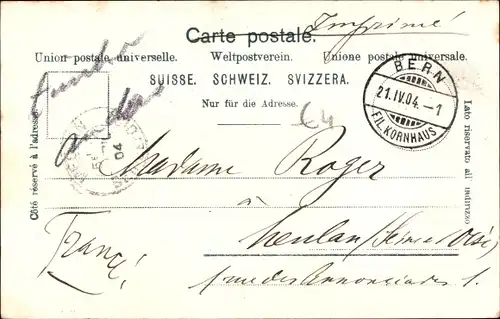 Carte postale.
Imprimé
Union postale universelle. Weltpostverein. Unione postale universale.
SUISSE. SCHWEIZ. SVIZZERA.
Nur für die Adresse.
BERN
21.IV.04.–1
FIL. KORNHAUS
64
Côté réservé à l'adresse
Lato riservato all' indirizzo
04
Madame Roger
à
Meulan (Seine & Oise)
France,
rue des Annonciades 1.